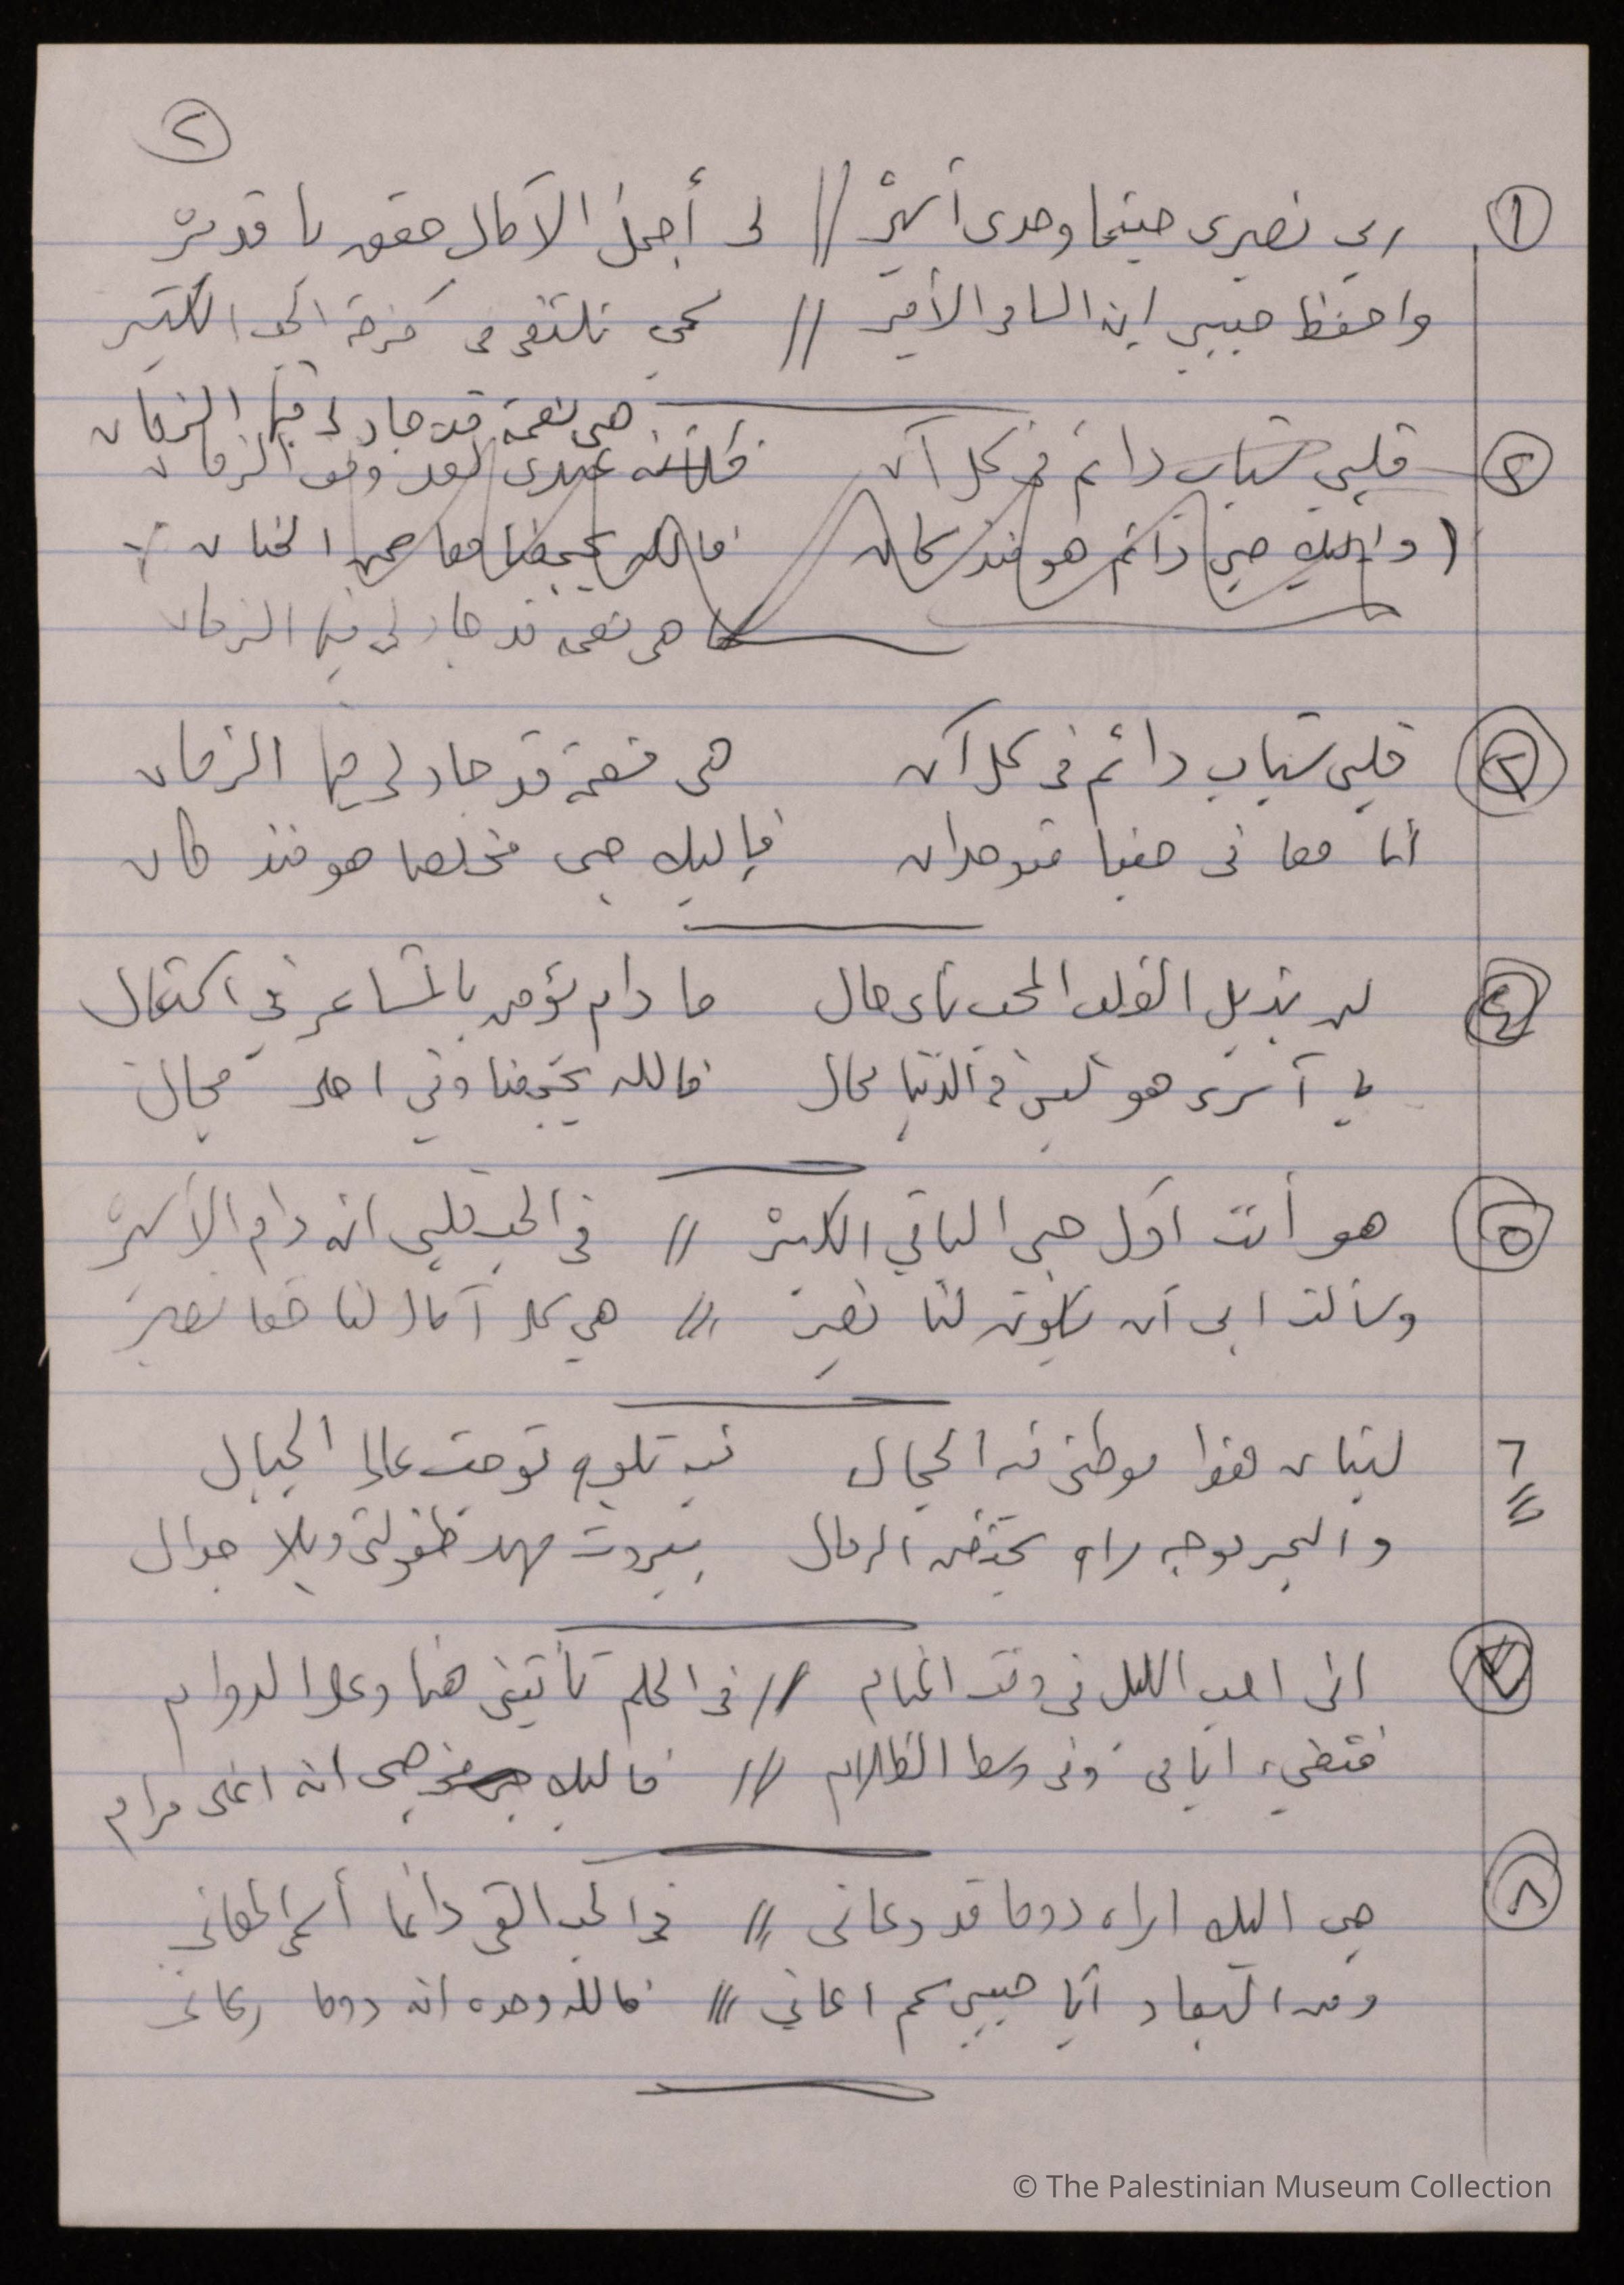 ٢
١ ربي نصيري حينما وحدي أسيرْ // لي أجمل الآمال حقق يا قديرْ
واحفظ حبيبي انه السامي الأمير // كي نلتقي في فرحة الحب الكبير
هي نعمة قد جاد لي فيها الزمان
٢ قلبي شباب دائم في كل آن فكأنه عهدي لقد وقف الزمان
( واليك حبي دائم هو منذ كان فالله يجمعنا معا ضمن الحنان
ها هي نعمة قد جاد لي فيها الزمان
٢ قلبي شباب دائم في كل آن هي نعمة قد جاد لي فيها الزمان
أنا معا في حبنا متوحدان فإليك حبي مخلصا هو منذ كان
٤ لن يذبل القلب المحب بأي حال ما دام يؤمن بالمشاعر في اكتمال
يا آسري هو ليس في الدنيا محال فالله يجمعنا وفي احلى مجال
٥ هو أنت اول حبي الباقي الكبيرْ // في الحب قلبي انه دام الأسيرْ
وسألت ربي أن يكون لنا نصير // هي كل آمال لنا معا نصير
٦ لبنان هذا موطني فيه الجمال فيه تلوح توجت عالي الجبال
والبحر موجه راح يحتضن الرمال بيروت مهد طفولتي وبلا جدال
٧ اني احب الليل في وقت المنام // في الحلم تأتيني هنا وعلى الدوام
فتضيء ايامي وفي وسط الظلام // فإليك حبي انه اغلى مرام
٨ حبي اليك اراه دوما قد دعاني // في الحب القى دائما أسمى المعاني
ومن البعاد أيا حبيبي كم اعاني // فالله وحده انه دوما رعاني
© The Palestinian Museum Collection